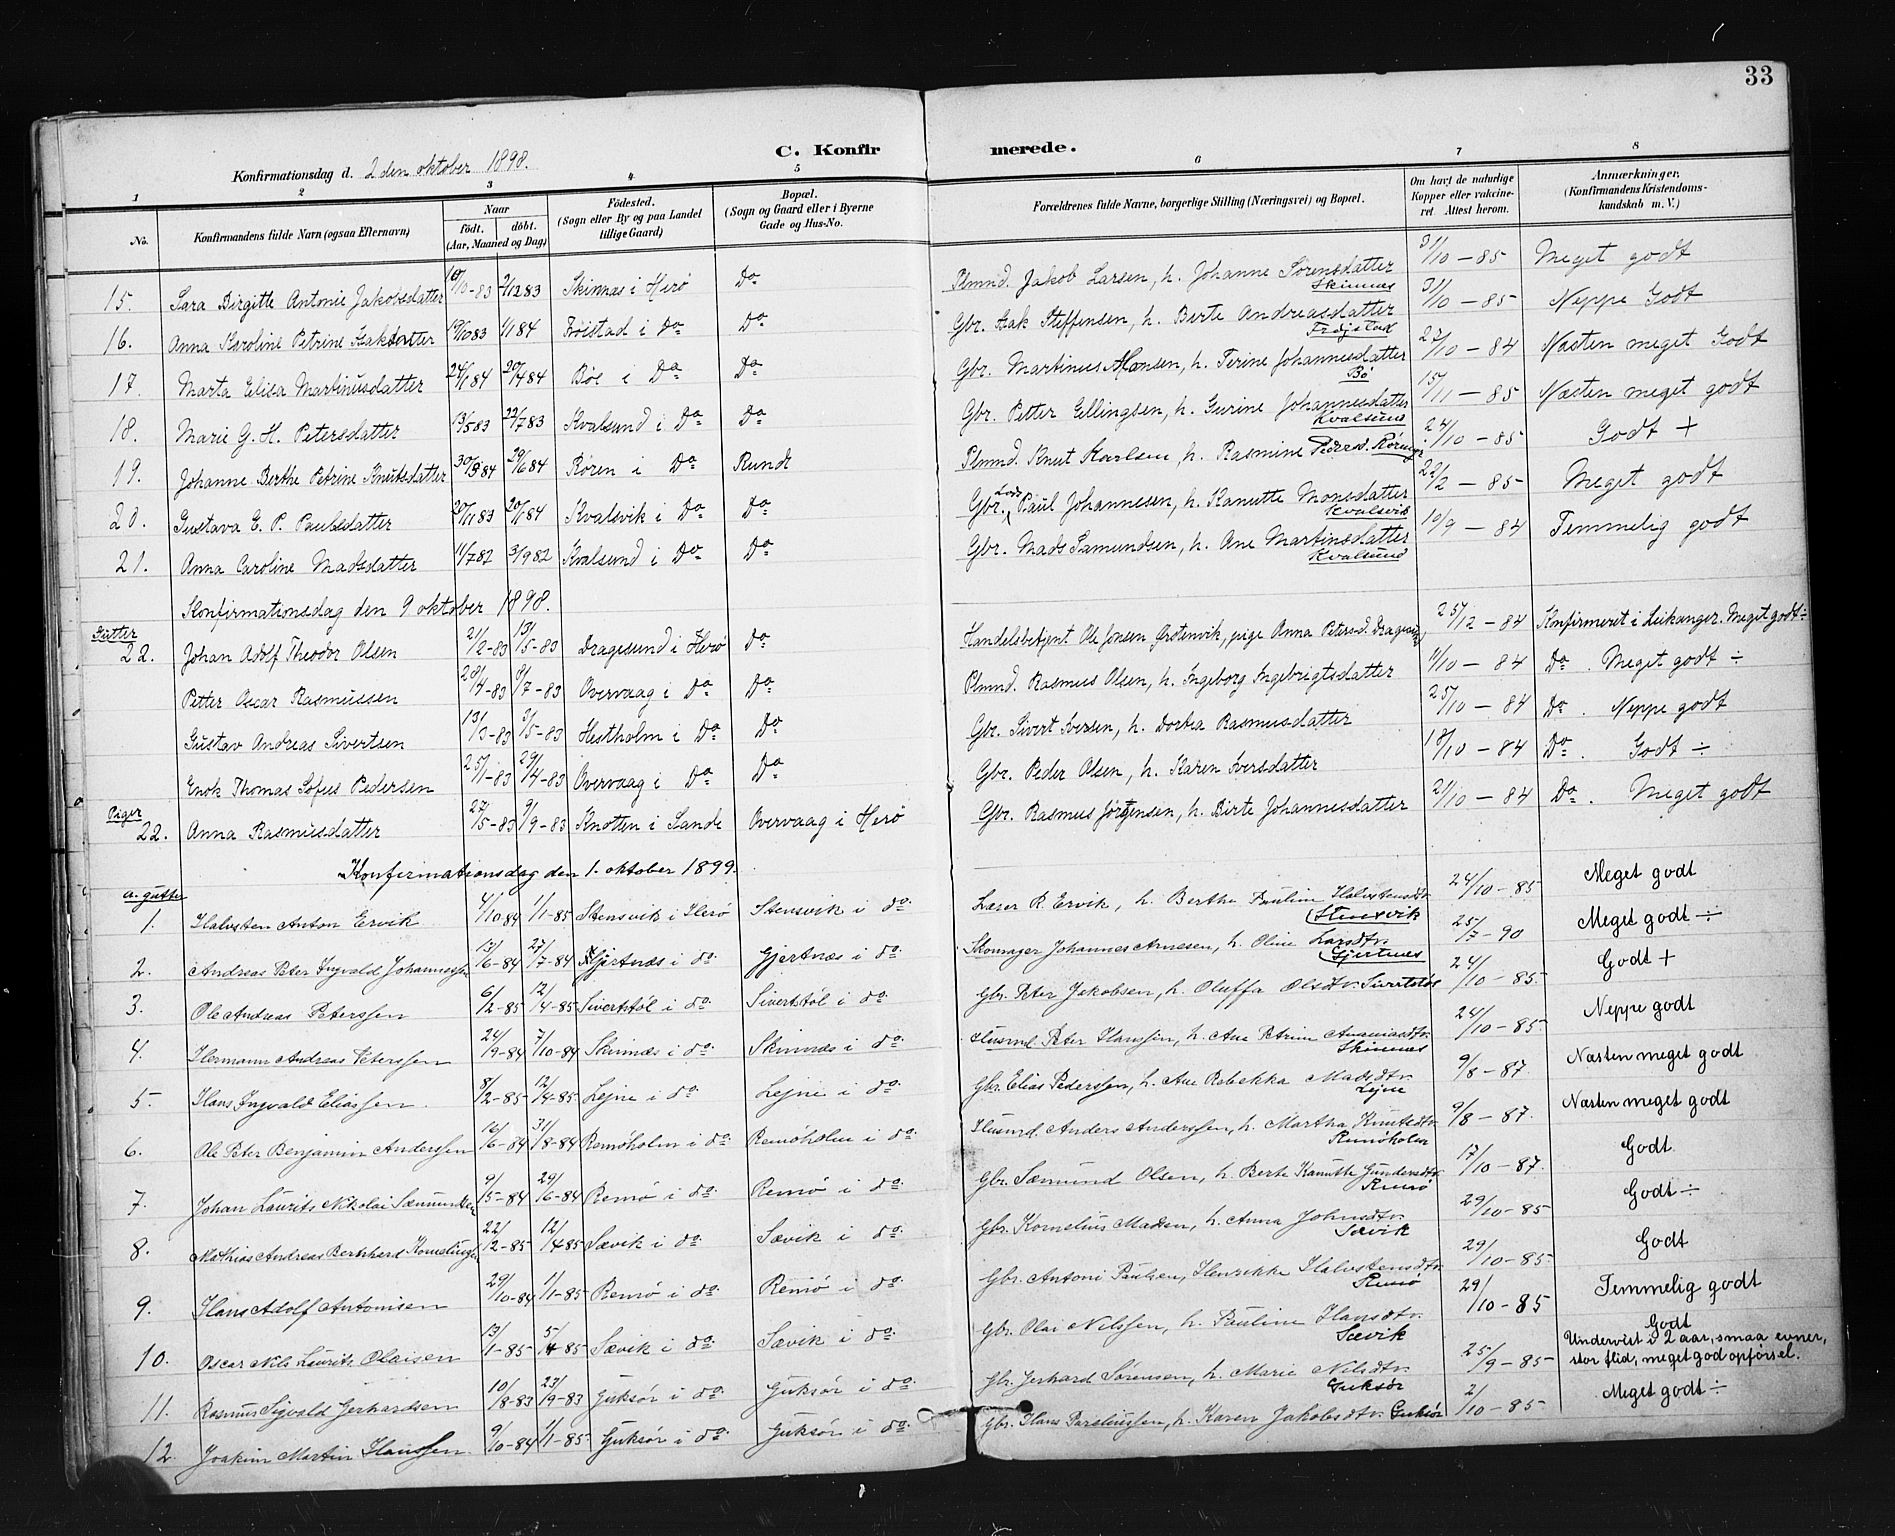 33
C. Konfirmerede.
Konfirmationsdag d. 2 den oktober 1898.
1 2 3 4 5 6 7 8
No. Konfirmandens fulde Navn (ogsaa Efternavn) Naar født. døbt. (Aar, Maaned og Dag) Fødested. (Sogn eller By og paa Landet tillige Gaard) Bopæl. (Sogn og Gaard eller i Byerne Gade og Hus-No. Forældrenes fulde Navne, borgerlige Stilling (Næringsvei) og Bopæl. Om havt de naturlige Kopper eller vakcineret Attest herom. Anmærkninger. (Konfirmandens Kristendomskundskab m. V.)
15. Sara Birgitte Antonie Jakobsdatter 10/10-83 2/12 83 Skinnæs i Herø Do Plmnd. Jakob Larsen, h. Johanne Sørensdatter Skinnæs 31/10 - 85 Meget godt
16. Anna Karoline Petrine Isaksdatter 19/10 83 1/1 84 Frøistad i Do Do Gbr. Isak Steffensen, h. Berte Andreasdatter Frøjstad 31/10 - 85 Neppe Godt
17. Marta Elisa Martinusdatter 24/1 84 20/4 84 Bøe i Do Do Gbr. Martinus Monsen, h. Terine Johannesdatter Bø 27/10 - 84 Næsten meget Godt
18. Marie G. H. Petersdatter 13/5 83 22/7 83 Kvalsund i Do Do Gbr. Petter Ellingsen, h. Gurine Johannesdatter Kvalsund 15/11 - 85 Næsten meget godt
19. Johanne Berthe Petrine Knutsdatter 30/3 84 29/6 84 Røren i Do Runde Plmnd. Knut Karlsen, h. Rasmine Pedersd. 24/10 - 85 Godt +
20. Gustava E. P. Paulsdatter 20/11 83 20/1 84 Kvalsvik i Do Do Gbr. Paul Johannesen, h. Kanutte Monsdatter Kvalsvik 22/2 - 85 Meget godt
21. Anna Caroline Madsdatter 11/7 82 3/9 82 Kvalsund i Do Do Gbr. Mads Samundsen, h. Ane Martinsdatter Kvalsund 10/9 - 84 Temmelig godt
Konfirmationsdag den 9 oktober 1898.
Gutter
22. Johan Adolf Theodor Olsen 21/2-83 13/5-83 Dragesund i Herø Do Handelsbetjent Ole Jonsen Grotenvik, pige Anna Petersd. Dragesund 25/12 - 84 Konfirmeret i Leikanger. Meget godt ÷
Petter Oscar Rasmussen 28/4-83 8/7-83 Overvaag i Do Do Plmnd. Rasmus Olsen, h. Ingeborg Ingebrigtsdatter 11/10 - 84 Do. Meget godt ÷
Gustav Andreas Sivertsen 13/3-83 3/5-83 Hestholm i Do Do Gbr. Sivert Iversen, h. Dortea Rasmusdatter 25/10 - 84 Do. Neppe godt
Enok Thomas Sofus Pedersen 25/1-83 29/4-83 Overvaag i Do Do Gbr. Peder Olsen, h. Karen Iversdatter 18/10 - 84 Do. Godt ÷
Piger
22. Anna Rasmusdatter 27/5-83 9/9-83 Knotten i Sande Overvaag i Herø Gbr. Rasmus Jørgensen, h. Birte Johannesdatter 21/10 - 84 Do. Meget godt
Konfirmationsdag den 1. oktober 1899.
a. gutter
1. Halvsten Anton Ervik 4/10-84 1/1-85 Stensvik i Herø Stensvik i do. Lærer R. Ervik, h. Berthe Pauline Halvstensdt. Stensvik 24/10-85 Meget godt
2. Andreas Peter Ingvald Johannessen 13/6-84 27/7-84 Gjertnæs i do. Gjertnæs i do. Skomager Johannes Arnesen, h. Oline Larsdtr. Gjertnæs 25/7-90 Meget godt ÷
3. Ole Andreas Peterssen 6/2-85 12/4-85 Sivertstøl i do. Sivertstøl i do. Gbr. Peter Jakobsen, h. Oluffa Olsdtr. Sivertstøl 24/10-85. Godt +
4. Hermann Andreas Peterssen 24/9-84 7/10-84 Skinnæs i do. Skinnæs i do. Husmd. Peter Hanssen, h. Ane Petrine Ananiasdtr. Skinnæs 24/10-85. Neppe godt
5. Hans Ingvald Eliassen. 8/2-85 12/4-85 Lejne i do. Lejne i do. Gbr. Elias Pederssen, h. Ane Rebekka Madsdtr. Lejne 9/8-87. Næsten meget godt
6. Ole Peter Benjamin Anderssen 16/6-84 31/8-84 Remøholm i do. Remøholm i do. Husmd. Anders Anderssen, h. Martha Knutsdtr. Remøholm 9/8-87. Næsten meget godt
7. Johan Laurits Nikolai Sæmundsen 9/5-84 29/6-84 Remø i do. Remø i do. Gbr. Sæmund Olsen, h. Berte Kanutte Gundersdtr. Remø 17/10-87. Godt
8. Mathias Andreas Bernhard Korneliussen 22/12-85 12/4 85 Sævik i do. Sævik i do. Gbr. Kornelius Madsen, h. Anna Johnsdtr. Sævik 29/10-85 Godt ÷
9. Hans Adolf Antonisen 29/10-84 1/1-85 Remø i do. Remø i do. Gbr. Antoni Paulsen, Henrikke Halvstensdtr. Remø 29/10-85. Godt
10. Oscar Nils Laurits Olaisen 13/1-85 5/4 85 Sævik i do. Sævik i do. Gbr. Olai Nilssen, h. Pauline Hansdtr. Sævik 29/10-85 Temmelig godt
11. Rasmus Sigvald Gerhardsen 10/8-83 23/9-83 Guksør i do. Guksør i do. Gbr. Gerhard Sørensen, h. Marie Nilsdtr. Guksør 25/9-85 Godt Undervist i 2 aar, smaa evner, stor flid, meget god opførsel.
12. Joakim Martin Hanssen. 9/10-84 1/1-85. Guksør i do. Guksør i do. Gbr. Hans h. Karen Jakobsdtr. Guksør 2/10-85 Meget godt ÷